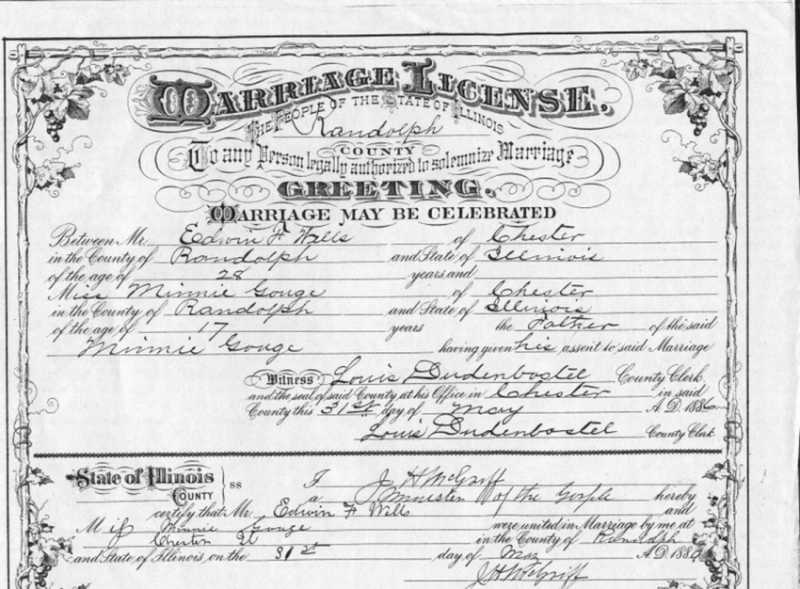 MARRIAGE LICENSE.
THE PEOPLE OF THE STATE OF ILLINOIS
Randolph
COUNTY
To any Person legally authorized to solemnize Marriage
GREETING.
MARRIAGE MAY BE CELEBRATED
Between Mr. Edwin F Wills of Chester
in the County of Randolph and State of Illinois
of the age of 28 years and
Miss Minnie Gouge of Chester
in the County of Randolph and State of Illinois
of the age of 17 years the Father of the said
Minnie Gouge having given his assent to said Marriage
Witness Louis Dudenbostel County Clerk
and the seal of said County at his Office in Chester in said
County this 31st day of May A.D. 188
Louis Dudenbostel County Clerk
State of Illinois
COUNTY ss I J H McGriff
a Minister of the Gosple hereby
certify that Mr. Edwin F Wills and
M Minnie Gouge were united in Marriage by me at
Chester Il in the County of Randolph
and State of Illinois, on the 31st day of May A.D. 188
J H McGriff